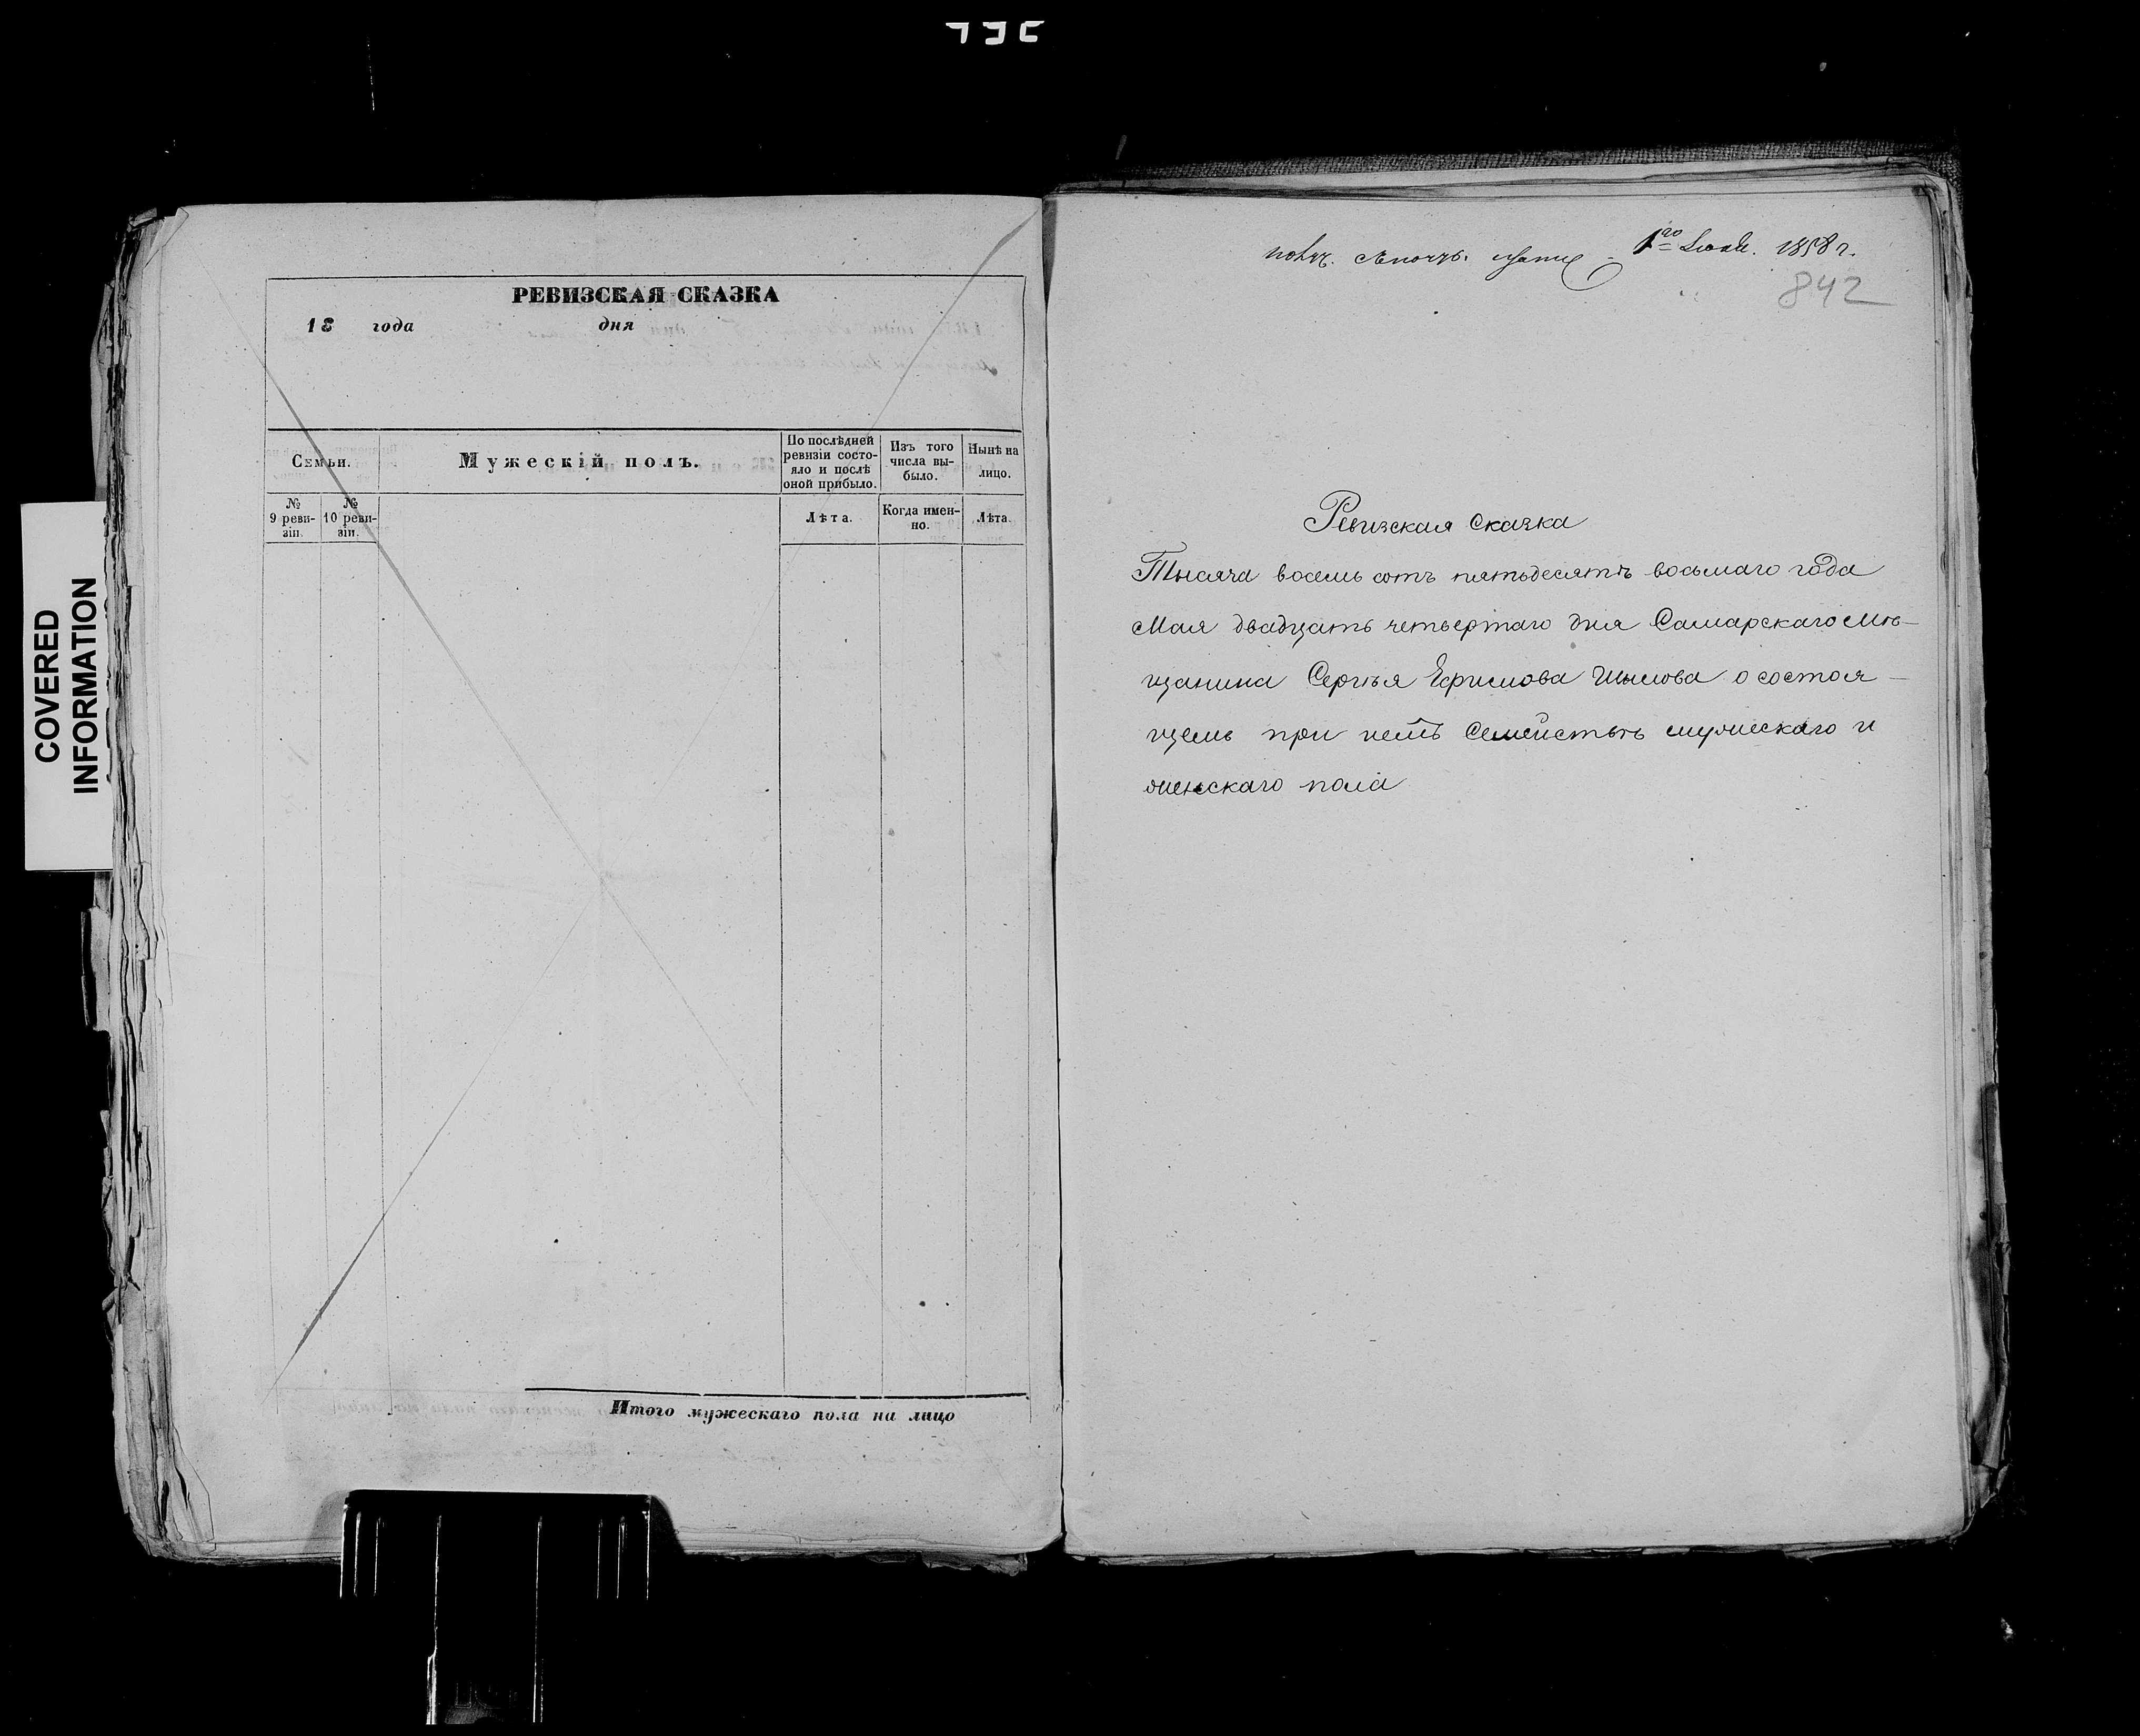 COVERED
INFORMATION
РЕВИЗСКАЯ СКАЗКА
18 года дня
Семьи.
Мужескій полъ.
По послѣдней
ревизіи состо-
яло и послѣ
оной прибыло.
Изъ того
числа вы-
было.
Нынѣ на
лицо.
№
9 реви-
зіи.
№
10 реви-
зіи.
Лѣта.
Когда имен-
но.
Лѣта.
Итого мужескаго пола на лицо
1го 1858 г.
842
Ревизская сказка
Тысяча восемь сотъ пятьдесятъ восьмаго года
Мая двадцать четвертаго дня Самарскаго Мѣ-
щанина Сергѣя Ефимова о состоя-
щемъ при немъ Семействѣ мужескаго и
женскаго пола